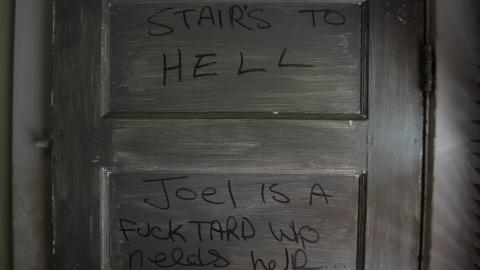 STAIR'S TO
HELL
Joel IS A
FUCKTARD WHO
needs help...